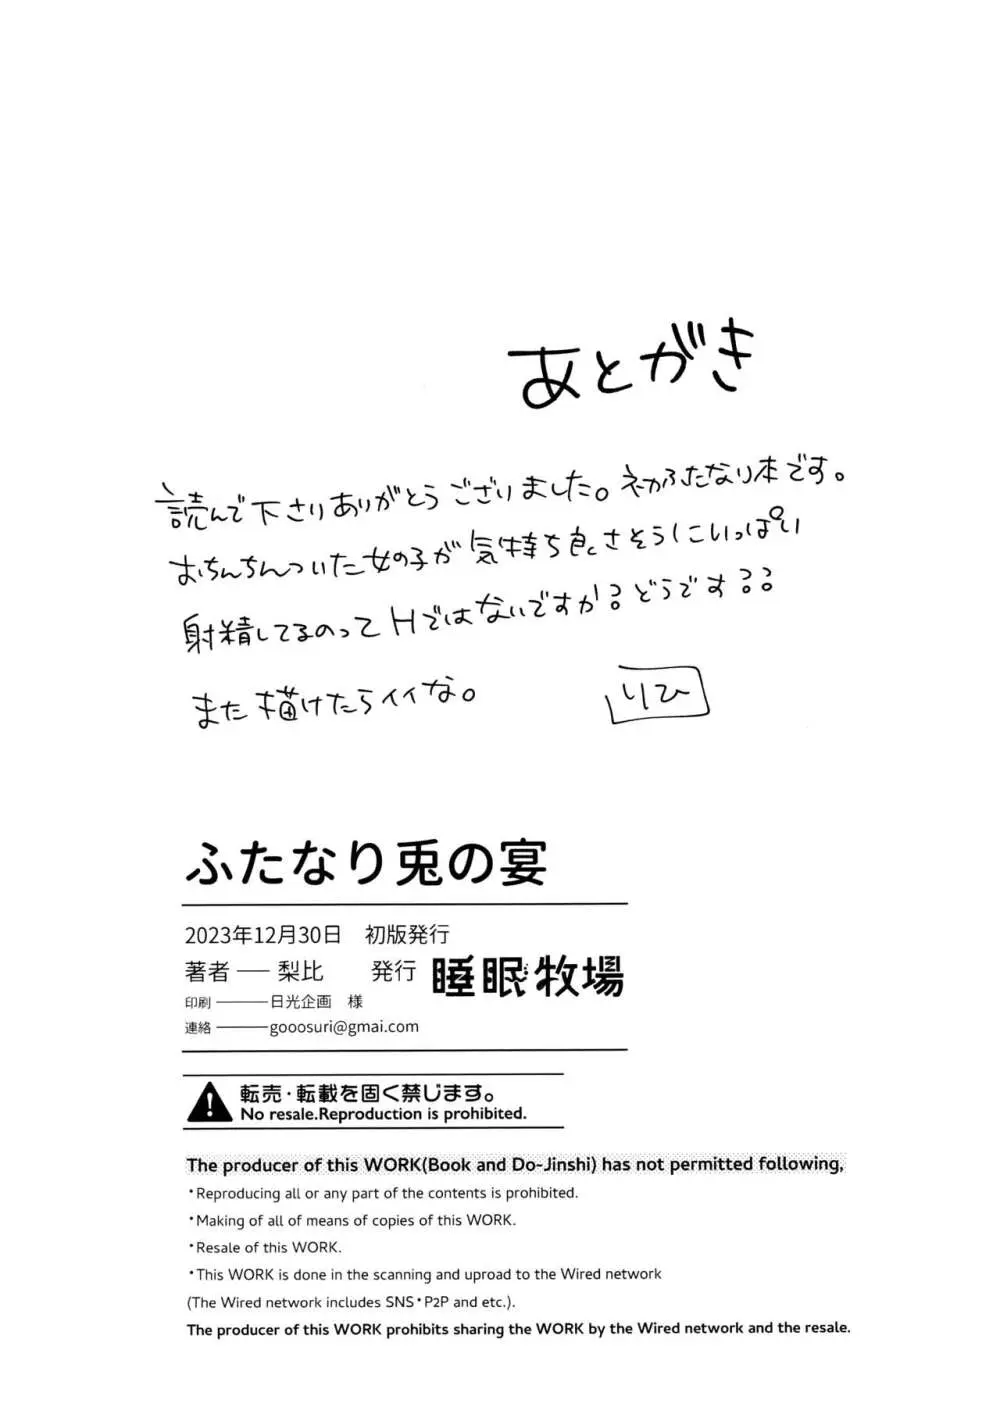 あとがき
読んで下さりありがとうございました。初ふたなり本です。
おちんちんついた女の子が気持ち良さそうにいっぱい
射精してるのってHではないですか?どうです??
また描けたらイイな。
りひ
ふたなり兎の宴
2023年12月30日 初版発行
著者 ― 梨比 発行 睡眠牧場
印刷 ――― 日光企画 様
連絡 ――― gooosuri@gmai.com
転売・転載を固く禁じます。
No resale.Reproduction is prohibited.
The producer of this WORK(Book and Do-Jinshi) has not permitted following,
・Reproducing all or any part of the contents is prohibited.
・Making of all of means of copies of this WORK.
・Resale of this WORK.
・This WORK is done in the scanning and uproad to the Wired network
(The Wired network includes SNS・P2P and etc.).
The producer of this WORK prohibits sharing the WORK by the Wired network and the resale.